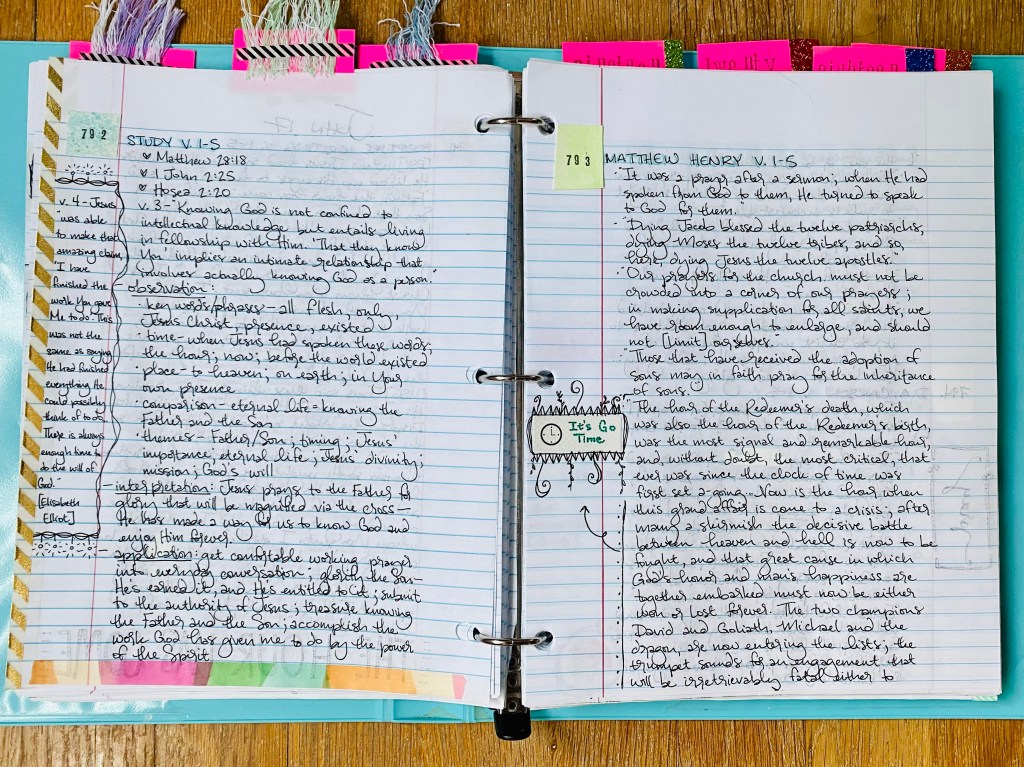 nineteen
twenty
eighteen
792
STUDY V. 1-5
♥ Matthew 28:18
♥ 1 John 2:25
♥ Hosea 2:20
v. 3 - "Knowing God is not confined to
intellectual knowledge but entails living
in fellowship with Him. 'That they know
You' implies an intimate relationship that
involves actually knowing God as a person."
- observation:
· key words/phrases - all flesh, only,
Jesus Christ, presence, existed
· time - when Jesus had spoken these words;
the hour; now; before the world existed
· place - to heaven; on earth; in Your
own presence
· comparison - eternal life = knowing the
Father and the Son
· themes - Father/Son; timing; Jesus'
importance; eternal life; Jesus' divinity;
mission; God's will
- interpretation: Jesus prays to the Father for
glory that will be magnified via the cross -
He has made a way for us to know God and
enjoy Him forever
- application: get comfortable working prayer
into everyday conversation; glorify the Son -
He's earned it, and He's entitled to it; submit
to the authority of Jesus; treasure knowing
the Father and the Son; accomplish the
work God has given me to do by the power
of the Spirit
v. 4 - Jesus
"was able
to make that
amazing claim,
'I have
finished the
work You gave
Me to do.' This
was not the
same as saying
He had finished
everything He
could possibly
think of to do.
There is always
enough time to
do the will of
God."
[Elisabeth
Elliot]
793
MATTHEW HENRY V. 1-5
· "It was a prayer after a sermon; when He had
spoken from God to them, He turned to speak
to God for them.
· "Dying Jacob blessed the twelve patriarchs,
dying Moses the twelve tribes, and so,
here, dying Jesus the twelve apostles."
· "Our prayers for the church must not be
crowded into a corner of our prayers;
in making supplication for all saints, we
have room enough to enlarge, and should
not [limit] ourselves."
· "Those that have received the adoption of
sons may in faith pray for the inheritance
of sons."
· "The hour of the Redeemer's death, which
was also the hour of the Redeemer's birth,
was the most signal and remarkable hour,
and, without doubt, the most critical, that
ever was since the clock of time was
first set a-going... Now is the hour when
this grand affair is come to a crisis; after
many a skirmish the decisive battle
between heaven and hell is now to be
fought, and that great cause in which
God's honor and man's happiness are
together embarked must now be either
won or lost forever. The two champions
David and Goliath, Michael and the
dragon, are now entering the lists; the
trumpet sounds for an engagement that
will be irretrievably fatal either to
It's Go
Time